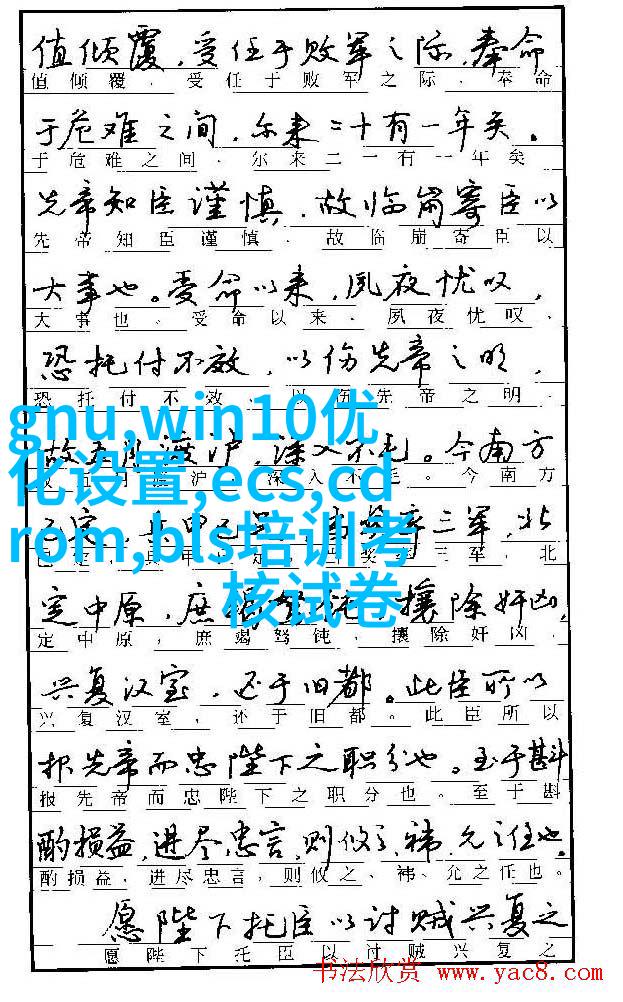 值倾覆，受任于败军之际，奉命
值倾覆，受任于败军之际，奉命
于危难之间，尔来二十有一年矣。
于危难之间，尔来二一有一年矣
先帝知臣谨慎，故临崩寄臣以
先帝知臣谨慎，故临崩寄臣以
大事也。受命以来，夙夜忧叹，
大事也。受命以来，夙夜忧叹，
恐托付不效，以伤先帝之明，
恐托付不效，以伤先帝之明，
gnu,win10优
化设置,ecs,cd
rom,bls培训考
核试卷
故 渡沪，深入不毛。今南方
沪，深入不毛。今南方
三军，北
三军，北
定中原，庶竭 攘除奸凶，
定中原，庶竭驽钝，攘除奸凶，
兴复汉室，还于旧都。此臣所以
兴复汉室，还于旧都。此臣所以
报先帝而忠陛下之职分也。至于斟
报先帝而忠陛下之职分也。至于斟
酌损益，进尽忠言，则攸之、祎、允之任也。
酌损益，进尽忠言，则攸之、祎、允之任也。
愿陛下托臣以讨贼兴复之
愿陛下托臣以讨贼兴复之
书法欣赏 www.yac8.com